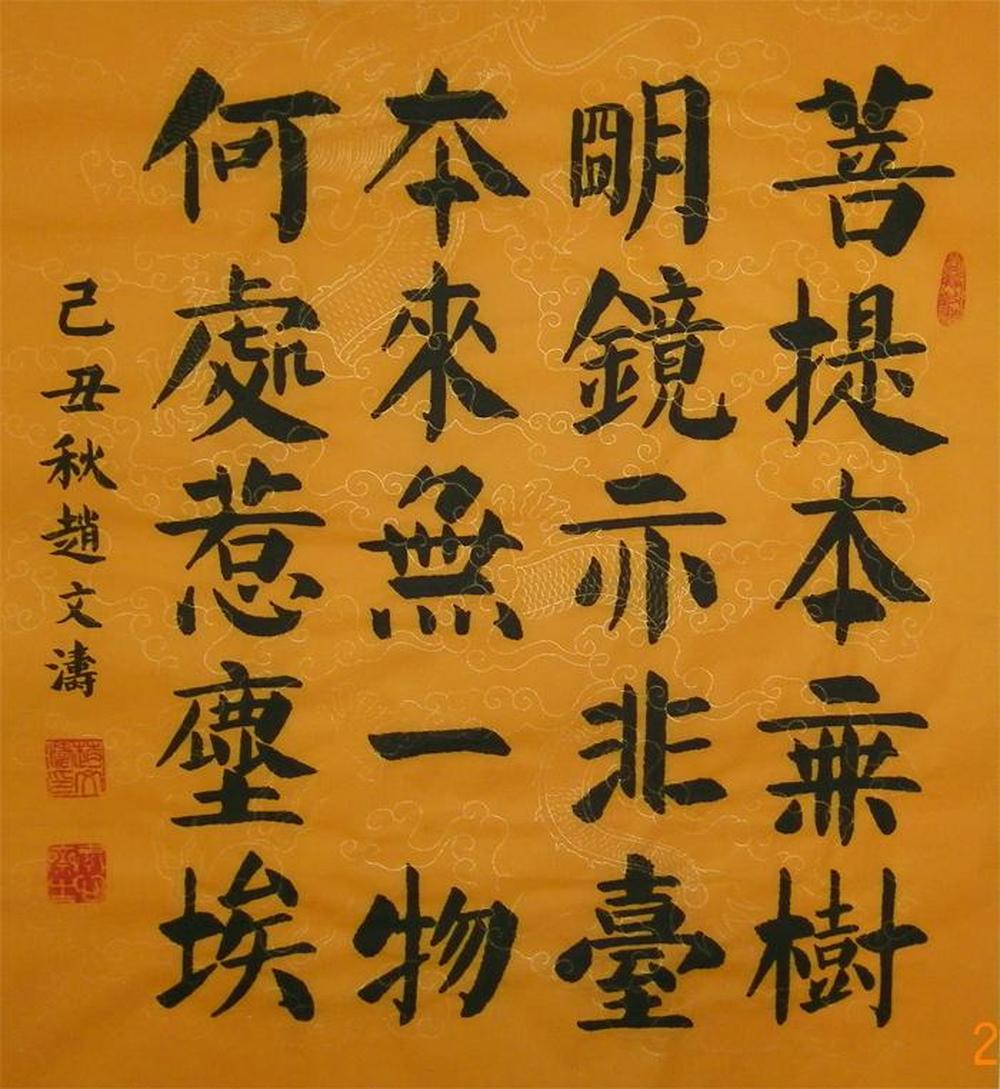 菩提本無樹
明鏡亦非臺
本來無一物
何處惹塵埃
己丑秋趙文濤
趙文濤印
2